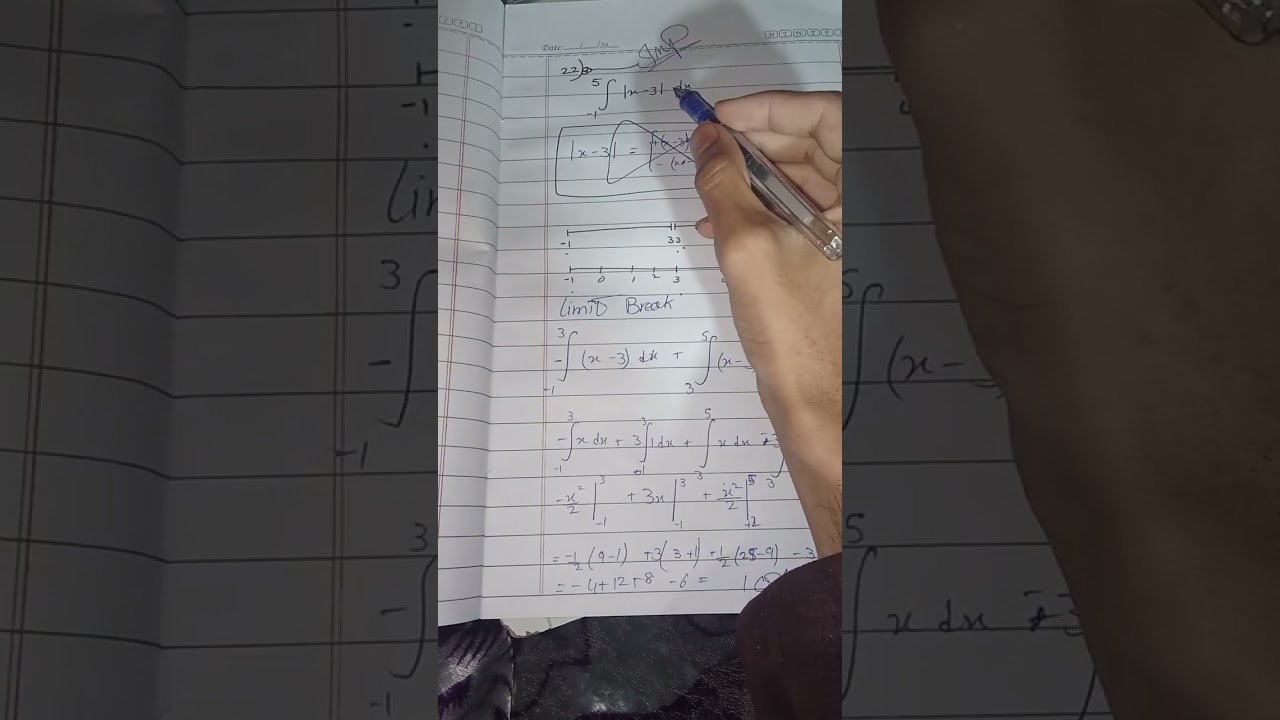 Date: / /20
Imp
22)
5 ∫ -1 |x-3| dx
|x-3| = +(x-3)
-(x
-1 3 3
-1 0 1 2 3
Limit Break
-∫ -1 3 (x-3) dx + ∫ 3 5 (x-
-∫ -1 3 x dx + 3 ∫ -1 3 1 dx + ∫ 3 5 x dx -3 ∫ 3
-x²/2 | -1 3 + 3x | -1 3 + x²/2 |
= -1/2 (9-1) +3(3+1) +1/2 (25-9) -3
= -4+12+8 -6 =